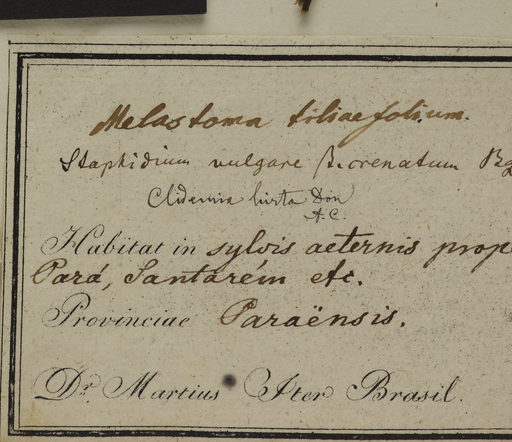 Melastoma tiliaefolium.
Staphidium vulgare β. crenatum
Clidemia hirta Don
A. C.
Habitat in sylvis aeternis prope
Pará, Santarém etc.
Provinciae Paraënsis.
Dr. Martius Iter Brasil.